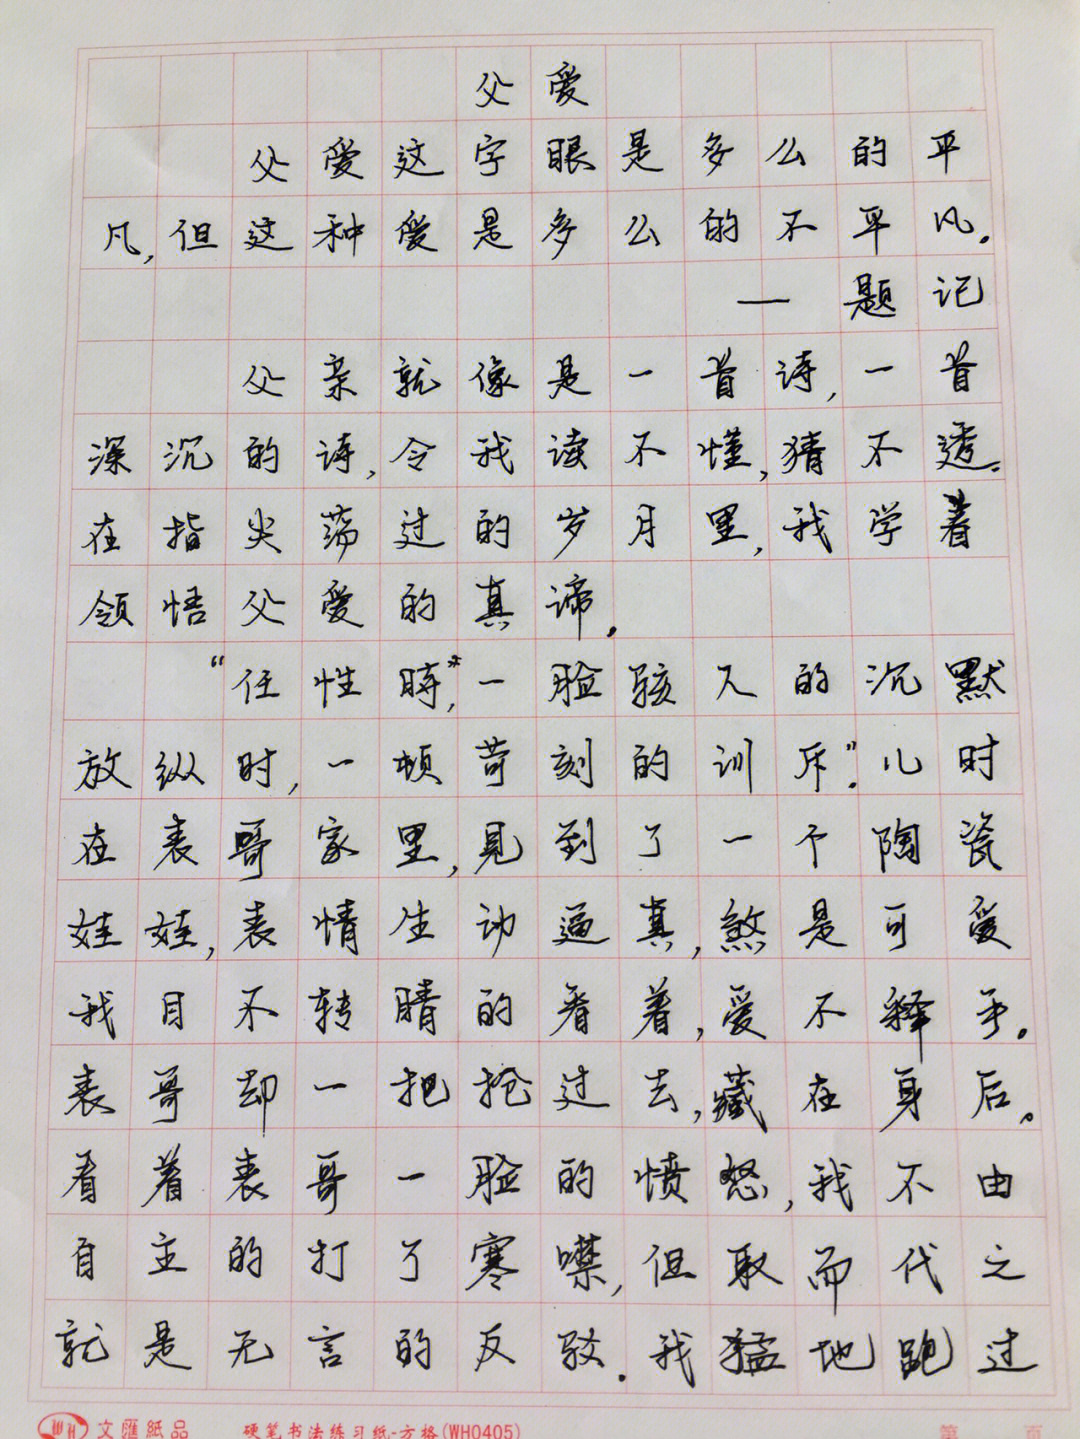 父爱
父爱这字眼是多么的平
凡,但这种爱是多么的不平凡。
— 题记
父亲就像是一首诗,一首
深沉的诗,令我读不懂,猜不透。
在指尖荡过的岁月里,我学着
领悟父爱的真谛。
“任性時”,一脸骇人的沉默
放纵时,一顿苛刻的训斥”。儿时
在表哥家里,見到了一个陶瓷
娃娃,表情生动逼真,煞是可爱
我目不转睛的看着,爱不释手。
表哥却一把抢过去,藏在身后。
看着表哥一脸的愤怒,我不由
自主的打了寒噤,但取而代之
就是无言的反驳。我猛地跑过
文匯紙品 硬笔书法练习纸-方格(WH0405) 第 页